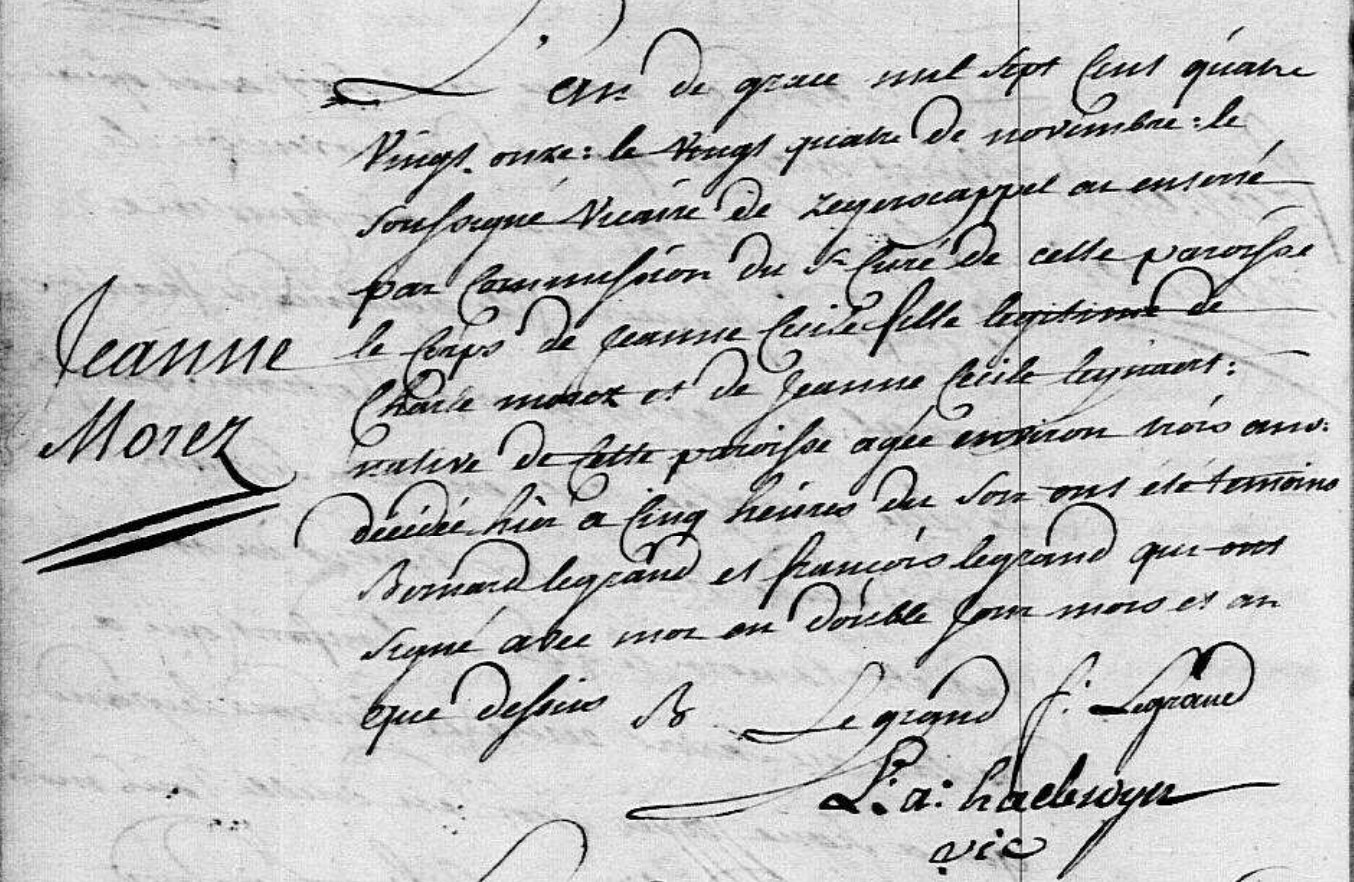 L'an de grace mil sept cent quatre
Vingt onze: le Vingt quatre de novembre: le
soussigné Vicaire de zegerscappel ai enterré
par Commission du Sr Curé de cette paroisse
le Corps de Jeanne Cecile fille legitime de
Charle morez et de Jeanne Cecile
native de Cette paroisse agée environ trois ans:
decedée hier a Cinq heures du soir ont été temoins
Bernard legrand et francois legrand qui ont
signé avec moi en double jour mois et an
que dessus B Legrand f: Legrand
L: a:
vic
Jeanne
Morez